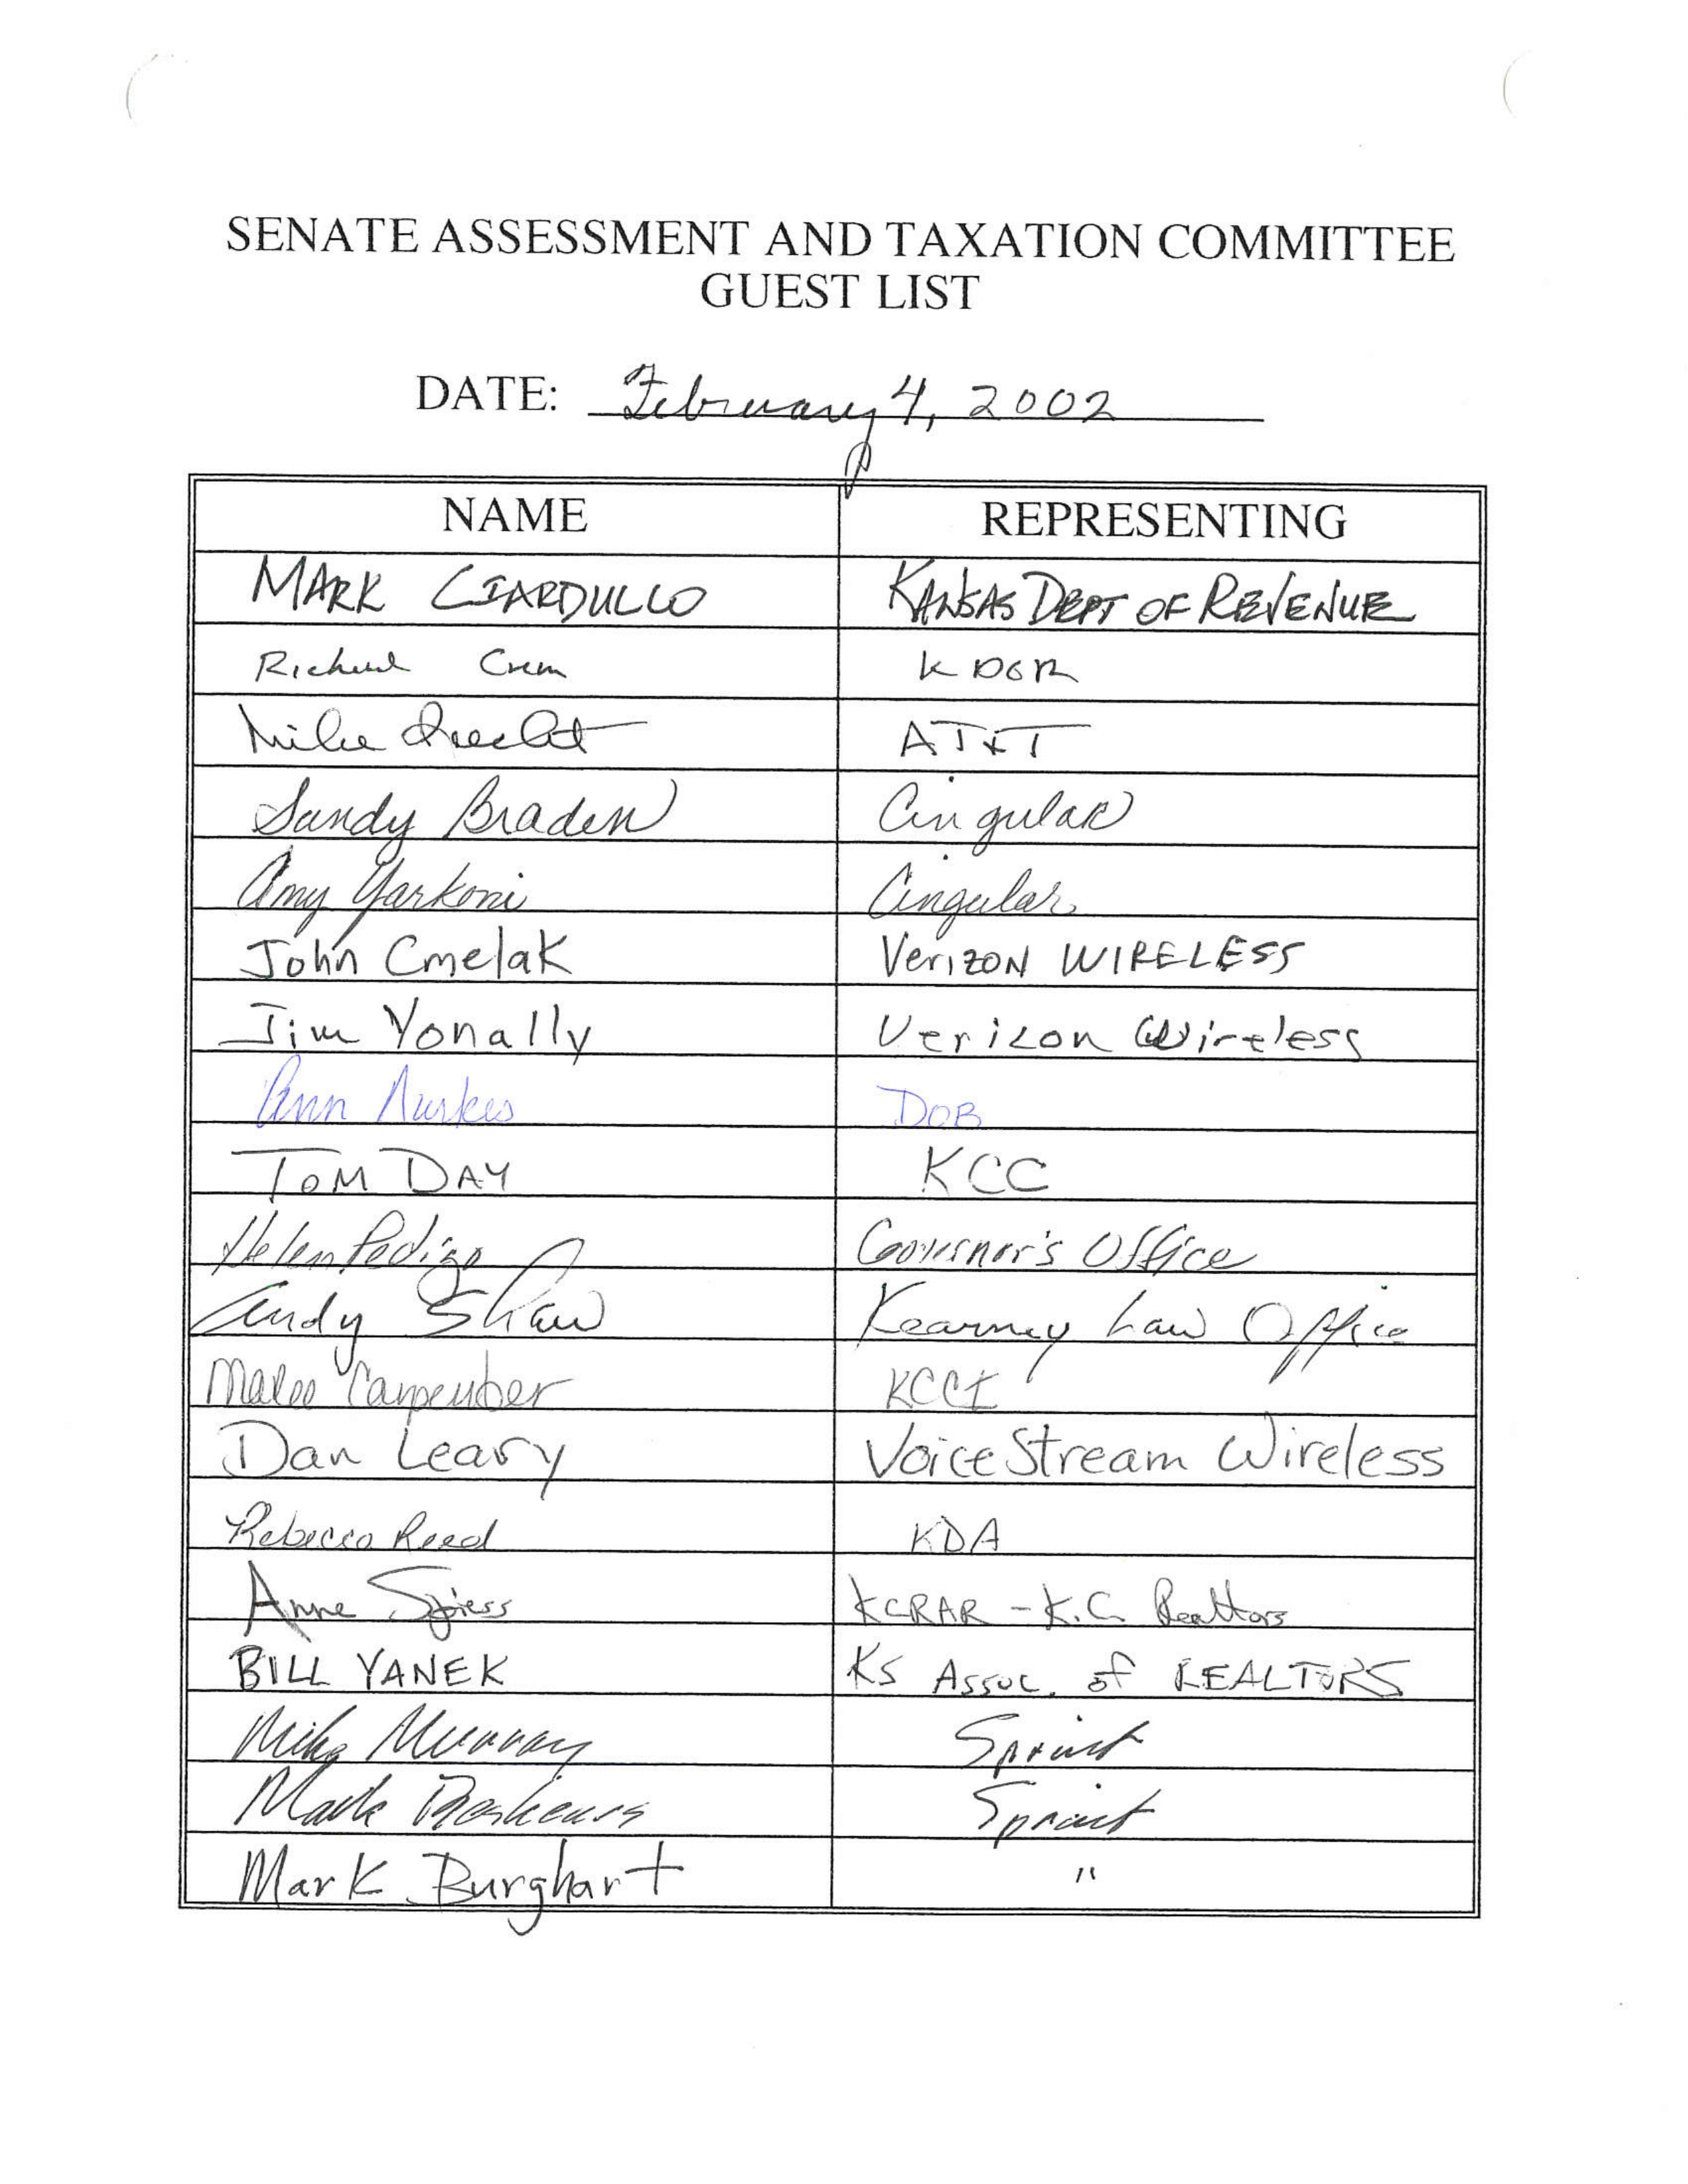 SENATE ASSESSMENT AND TAXATION COMMITTEE
GUEST LIST
DATE: February 4, 2002
NAME REPRESENTING
MARK CIARDULLO KANSAS DEPT OF REVENUE
Richard Cram KDOR
Mike Recht AT&T
Sandy Braden Cingular
Amy Yarkoni Cingular
John Cmelak Verizon WIRELESS
Jim Yonally Verizon Wireless
Ann Durkes DOB
TOM DAY KCC
Helen Pedigo Governor's Office
Andy Shaw Kearney Law Office
Marlee Carpenter KCCI
Dan Leary VoiceStream Wireless
Rebecca Reed KDA
Anne Spiess KCRAR - K.C. Realtors
BILL YANEK KS Assoc. of REALTORS
Mike Murray Sprint
Mark Beshears Sprint
Mark Burghart "